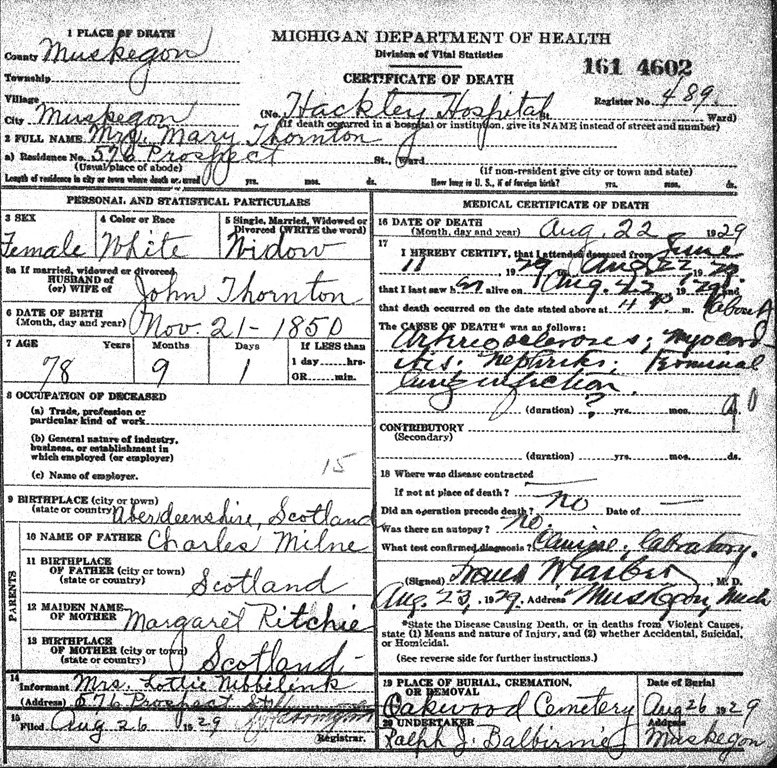 1 PLACE OF DEATH
County Muskegon
Township
Village
City Muskegon
MICHIGAN DEPARTMENT OF HEALTH
Division of Vital Statistics
CERTIFICATE OF DEATH
161 4602
Register No. 489
(No. Hackley Hospital St. Ward)
(If death occurred in a hospital or institution, give its NAME instead of street and number)
2 FULL NAME Mrs. Mary Thornton
a) Residence No. 576 Prospect St., Ward
(Usual place of abode) (If non-resident give city or town and state)
Length of residence in city or town where death occurred yrs. mos. ds. How long in U. S., if of foreign birth? yrs. mos. ds.
PERSONAL AND STATISTICAL PARTICULARS
3 SEX 4 Color or Race 5 Single, Married, Widowed or
Divorced (WRITE the word)
Female White Widow
5a If married, widowed or divorced
HUSBAND of
(or) WIFE of John Thornton
6 DATE OF BIRTH
(Month, day and year) Nov. 21 - 1850
7 AGE Years Months Days If LESS than
1 day hrs.
OR min.
78 9 1
8 OCCUPATION OF DECEASED
(a) Trade, profession or
particular kind of work
(b) General nature of industry,
business, or establishment in
which employed (or employer)
15
(c) Name of employer.
9 BIRTHPLACE (city or town)
(state or country) Aberdeenshire, Scotland
PARENTS
10 NAME OF FATHER Charles Milne
11 BIRTHPLACE
OF FATHER (city or town)
(state or country) Scotland
12 MAIDEN NAME
OF MOTHER Margaret Ritchie
13 BIRTHPLACE
OF MOTHER (city or town)
(state or country) Scotland
14
Informant Mrs. Lottie Nibbelink
(Address) 576 Prospect St
15
Filed Aug 26 1929
Registrar.
MEDICAL CERTIFICATE OF DEATH
16 DATE OF DEATH
(Month, day and year) Aug. 22 1929
17
I HEREBY CERTIFY, that I attended deceased from June
11, 1929, to Aug. 22 1929
that I last saw her alive on Aug. 22 1929 and
that death occurred on the date stated above at 4 P. m. (about)
The CAUSE OF DEATH* was as follows:
Arteriosclerosis; myocard-
itis; nephritis; terminal
lung infection.
(duration) ? yrs. mos. ds.
90
CONTRIBUTORY
(Secondary)
(duration) yrs. mos. ds.
18 Where was disease contracted
If not at place of death?
Did an operation precede death? no Date of —
Was there an autopsy? no.
What test confirmed diagnosis? Clinical, laboratory.
(Signed) M. D.
Aug. 23, 1929. Address Muskegon, Mich
*State the Disease Causing Death, or in deaths from Violent Causes,
state (1) Means and nature of Injury, and (2) whether Accidental, Suicidal,
or Homicidal.
(See reverse side for further instructions.)
19 PLACE OF BURIAL, CREMATION, Date of Burial
OR REMOVAL
Oakwood Cemetery Aug 26 1929
20 UNDERTAKER Address
Ralph J. Balbirnie Muskegon